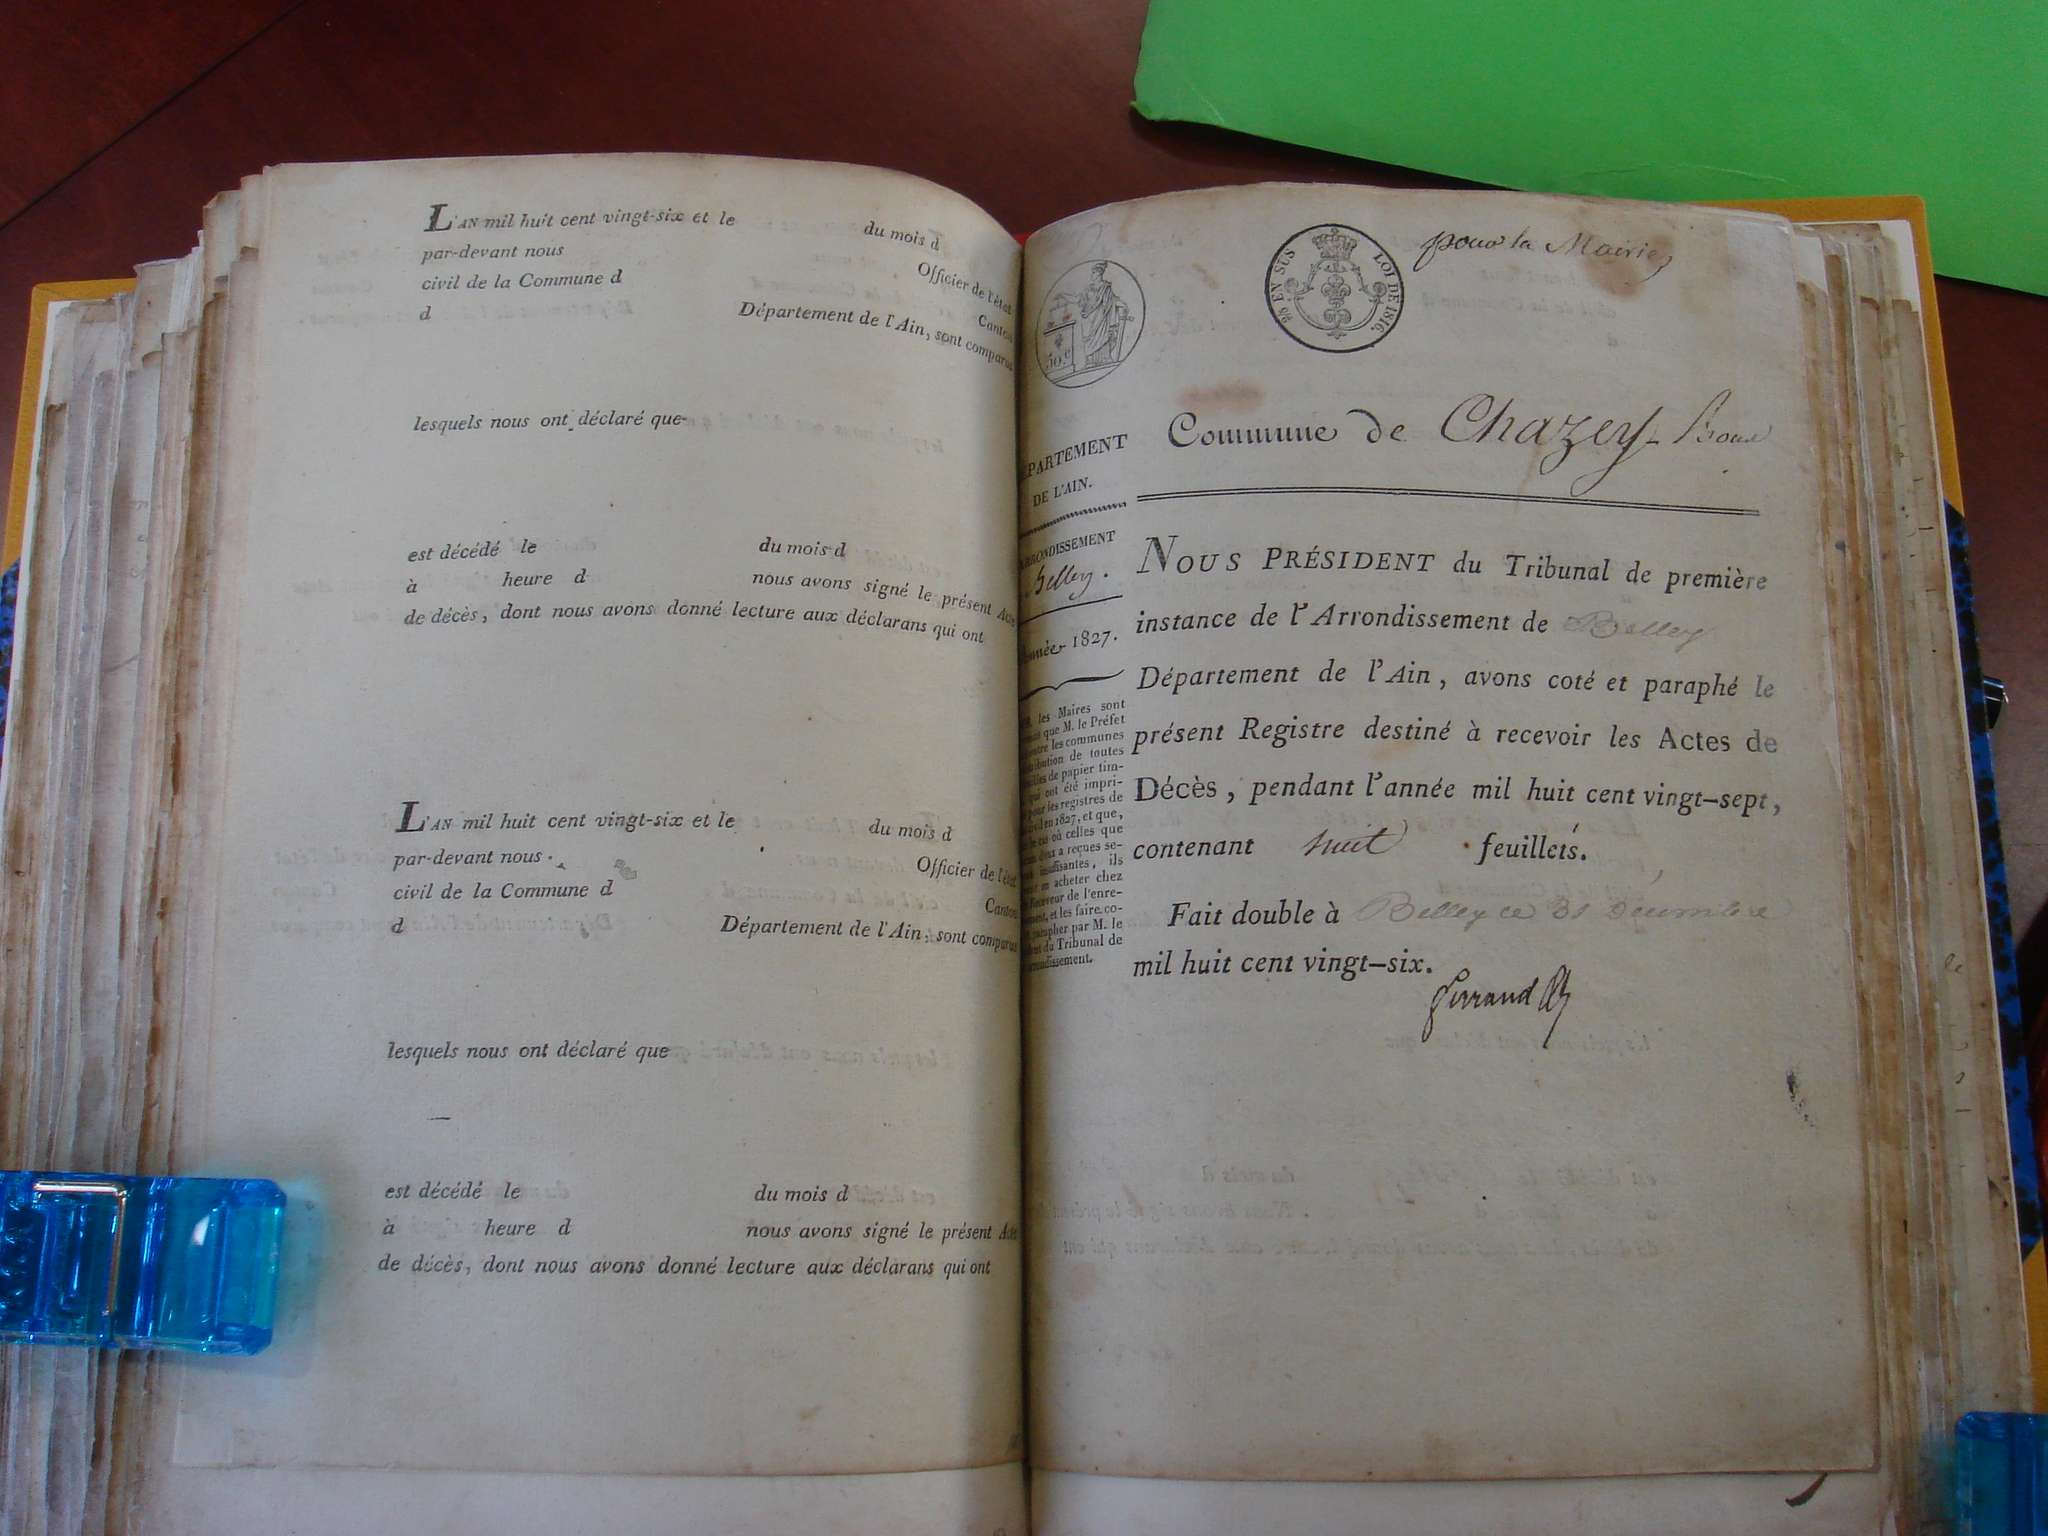 L'AN mil huit cent vingt-six et le du mois d
par-devant nous Officier de l'état
civil de la Commune d Canton
d Département de l'Ain, sont comparus
lesquels nous ont déclaré que
est décédé le du mois d
à heure d nous avons signé le présent Acte
de décès, dont nous avons donné lecture aux déclarans qui ont
L'AN mil huit cent vingt-six et le du mois d
par-devant nous Officier de l'état
civil de la Commune d Canton
d Département de l'Ain, sont comparus
lesquels nous ont déclaré que
est décédé le du mois d
à heure d nous avons signé le présent Acte
de décès, dont nous avons donné lecture aux déclarans qui ont
50.c
EN SUS LOI DE 1816.
pour la Mairie
PARTEMENT
DE L'AIN.
RRONDISSEMENT
Belley.
nnée 1827.
les Maires sont
que M. le Préfet
entre les communes
tribution de toutes
de papier tim-
qui ont été impri-
pour les registres de
civil en 1827, et que,
le cas où celles que
a reçues se-
insuffisantes, ils
en acheter chez
Receveur de l'enre-
ment, et les faire co-
parapher par M. le
du Tribunal de
rondissement.
Commune de Chazey-Bons
NOUS PRÉSIDENT du Tribunal de première
instance de l'Arrondissement de Belley
Département de l'Ain, avons coté et paraphé le
présent Registre destiné à recevoir les Actes de
Décès, pendant l'année mil huit cent vingt-sept,
contenant huit feuillets.
Fait double à Belley ce 31 Décembre
mil huit cent vingt-six.